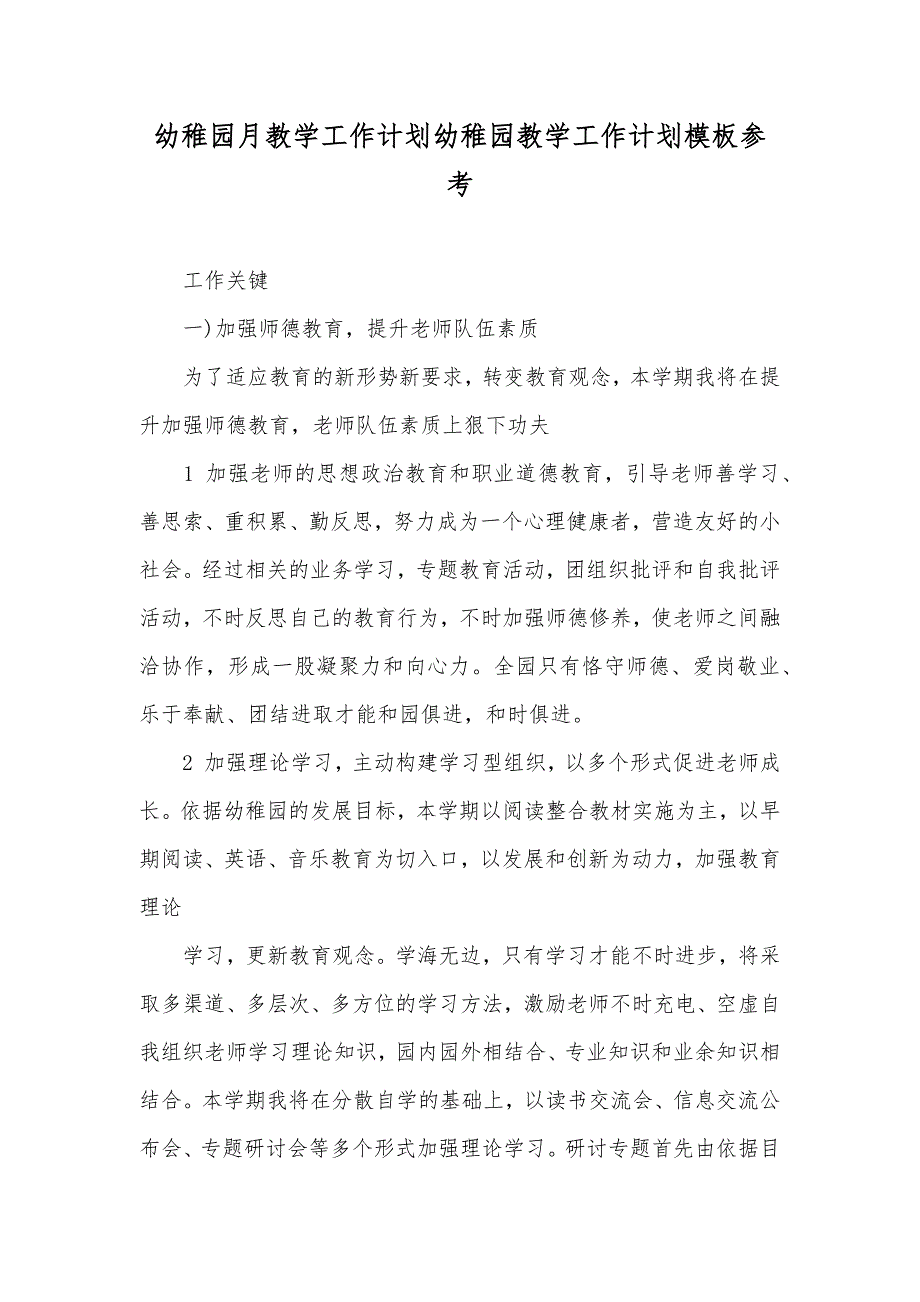 幼稚园月教学工作计划幼稚园教学工作计划模板参
考
工作关键
一)加强师德教育，提升老师队伍素质
为了适应教育的新形势新要求，转变教育观念，本学期我将在提
升加强师德教育，老师队伍素质上狠下功夫
1 加强老师的思想政治教育和职业道德教育，引导老师善学习、
善思索、重积累、勤反思，努力成为一个心理健康者，营造友好的小
社会。经过相关的业务学习，专题教育活动，团组织批评和自我批评
活动，不时反思自己的教育行为，不时加强师德修养，使老师之间融
洽协作，形成一股凝聚力和向心力。全园只有恪守师德、爱岗敬业、
乐于奉献、团结进取才能和园俱进，和时俱进。
2 加强理论学习，主动构建学习型组织，以多个形式促进老师成
长。依据幼稚园的发展目标，本学期以阅读整合教材实施为主，以早
期阅读、英语、音乐教育为切入口，以发展和创新为动力，加强教育
理论
学习，更新教育观念。学海无边，只有学习才能不时进步，将采
取多渠道、多层次、多方位的学习方法，激励老师不时充电、空虚自
我组织老师学习理论知识，园内园外相结合、专业知识和业余知识相
结合。本学期我将在分散自学的基础上，以读书交流会、信息交流公
布会、专题研讨会等多个形式加强理论学习。研讨专题首先由依据目